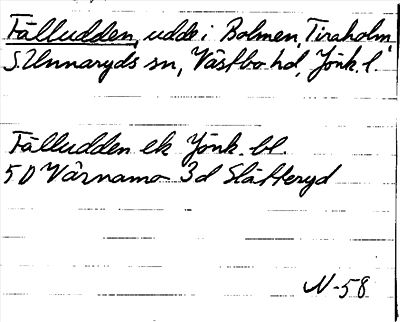 Fälludden, udde i Bolmen, Tiraholm
S. Unnaryds sn, Västbo hd, Jönk. l
Fälludden ek Jönk. bl.
5D Värnamo 3d Slätteryd
N-58